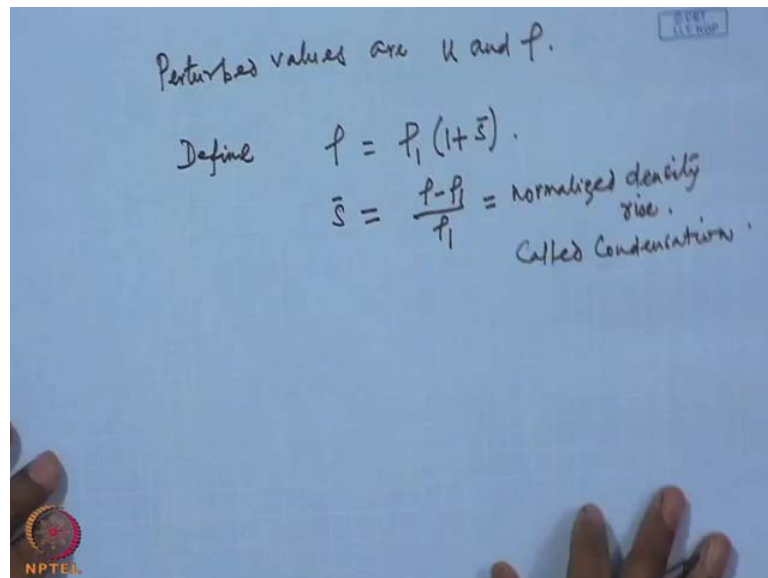 Perturbed values are u and ρ.
Define ρ = ρ₁ (1 + s̄).
s̄ = (ρ - ρ₁)/ρ₁ = normalized density
rise.
Called Condensation.
NPTEL